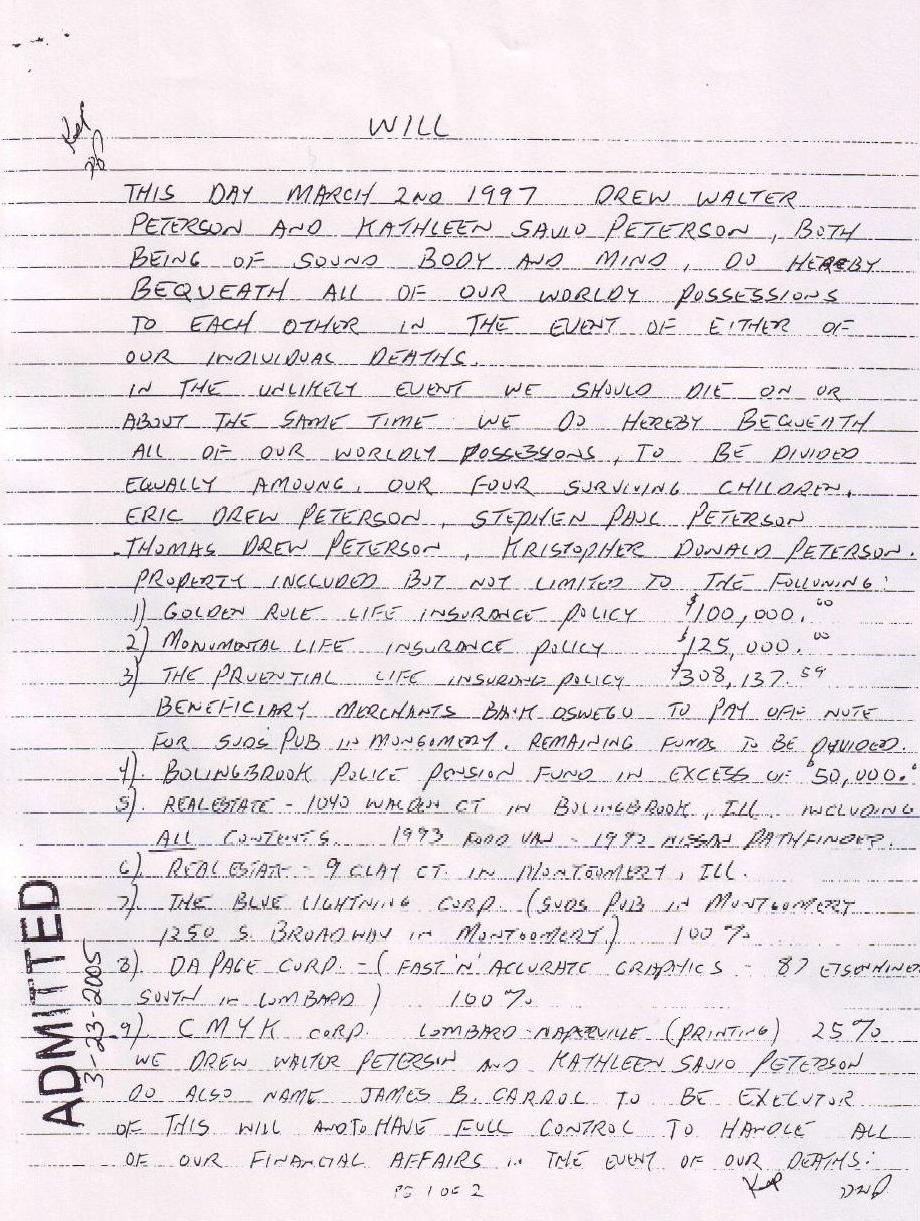 WILL
Ksp
THIS DAY MARCH 2ND 1997 DREW WALTER
PETERSON AND KATHLEEN SAVIO PETERSON, BOTH
BEING OF SOUND BODY AND MIND, DO HEREBY
BEQUEATH ALL OF OUR WORLDY POSSESSIONS
TO EACH OTHER IN THE EVENT OF EITHER OF
OUR INDIVIDUAL DEATHS.
IN THE UNLIKELY EVENT WE SHOULD DIE ON OR
ABOUT THE SAME TIME WE DO HEREBY BEQUEATH
ALL OF OUR WORLDLY POSSESSIONS, TO BE DIVIDED
EQUALLY AMOUNG, OUR FOUR SURVIVING CHILDREN,
ERIC DREW PETERSON, STEPHEN PAUL PETERSON
THOMAS DREW PETERSON, KRISTOPHER DONALD PETERSON.
PROPERTY INCLUDED BUT NOT LIMITED TO THE FOLLOWING:
1) GOLDEN RULE LIFE INSURANCE POLICY $100,000.00
2) MONUMENTAL LIFE INSURANCE POLICY $125,000.00
3) THE PRUENTIAL LIFE INSURANCE POLICY $308,137.59
BENEFICIARY MERCHANTS BANK OSWEGO TO PAY OFF NOTE
FOR SUDS PUB IN MONTGOMERY. REMAINING FUNDS TO BE DIVIDED.
4). BOLINGBROOK POLICE PENSION FUND IN EXCESS OF $50,000.
5). REALESTATE - 1040 WALDEN CT IN BOLINGBROOK, ILL INCLUDING
ALL CONTENTS 1993 FORD VAN - 1992 NISSAN PATHFINDER.
6). REALESTATE - 9 CLAY CT. IN MONTGOMERY, ILL.
7). THE BLUE LIGHTNING CORP. (SUDS PUB IN MONTGOMERY
1250 S. BROADWAY IN MONTGOMERY) 100%
8). DAPAGE CORP. - (FAST 'N' ACCURATE GRAPHICS - 87
SOUTH IN LOMBARD) 100%
9). CMYK CORP. LOMBARD-NAPERVILLE (PRINTING) 25%
WE DREW WALTER PETERSON AND KATHLEEN SAVIO PETERSON
DO ALSO NAME JAMES B. CARROL TO BE EXECUTOR
OF THIS WILL AND TO HAVE FULL CONTROL TO HANDLE ALL
OF OUR FINANCIAL AFFAIRS IN THE EVENT OF OUR DEATHS.
PG 1 OF 2 Ksp DWP
ADMITTED
3-23-2005